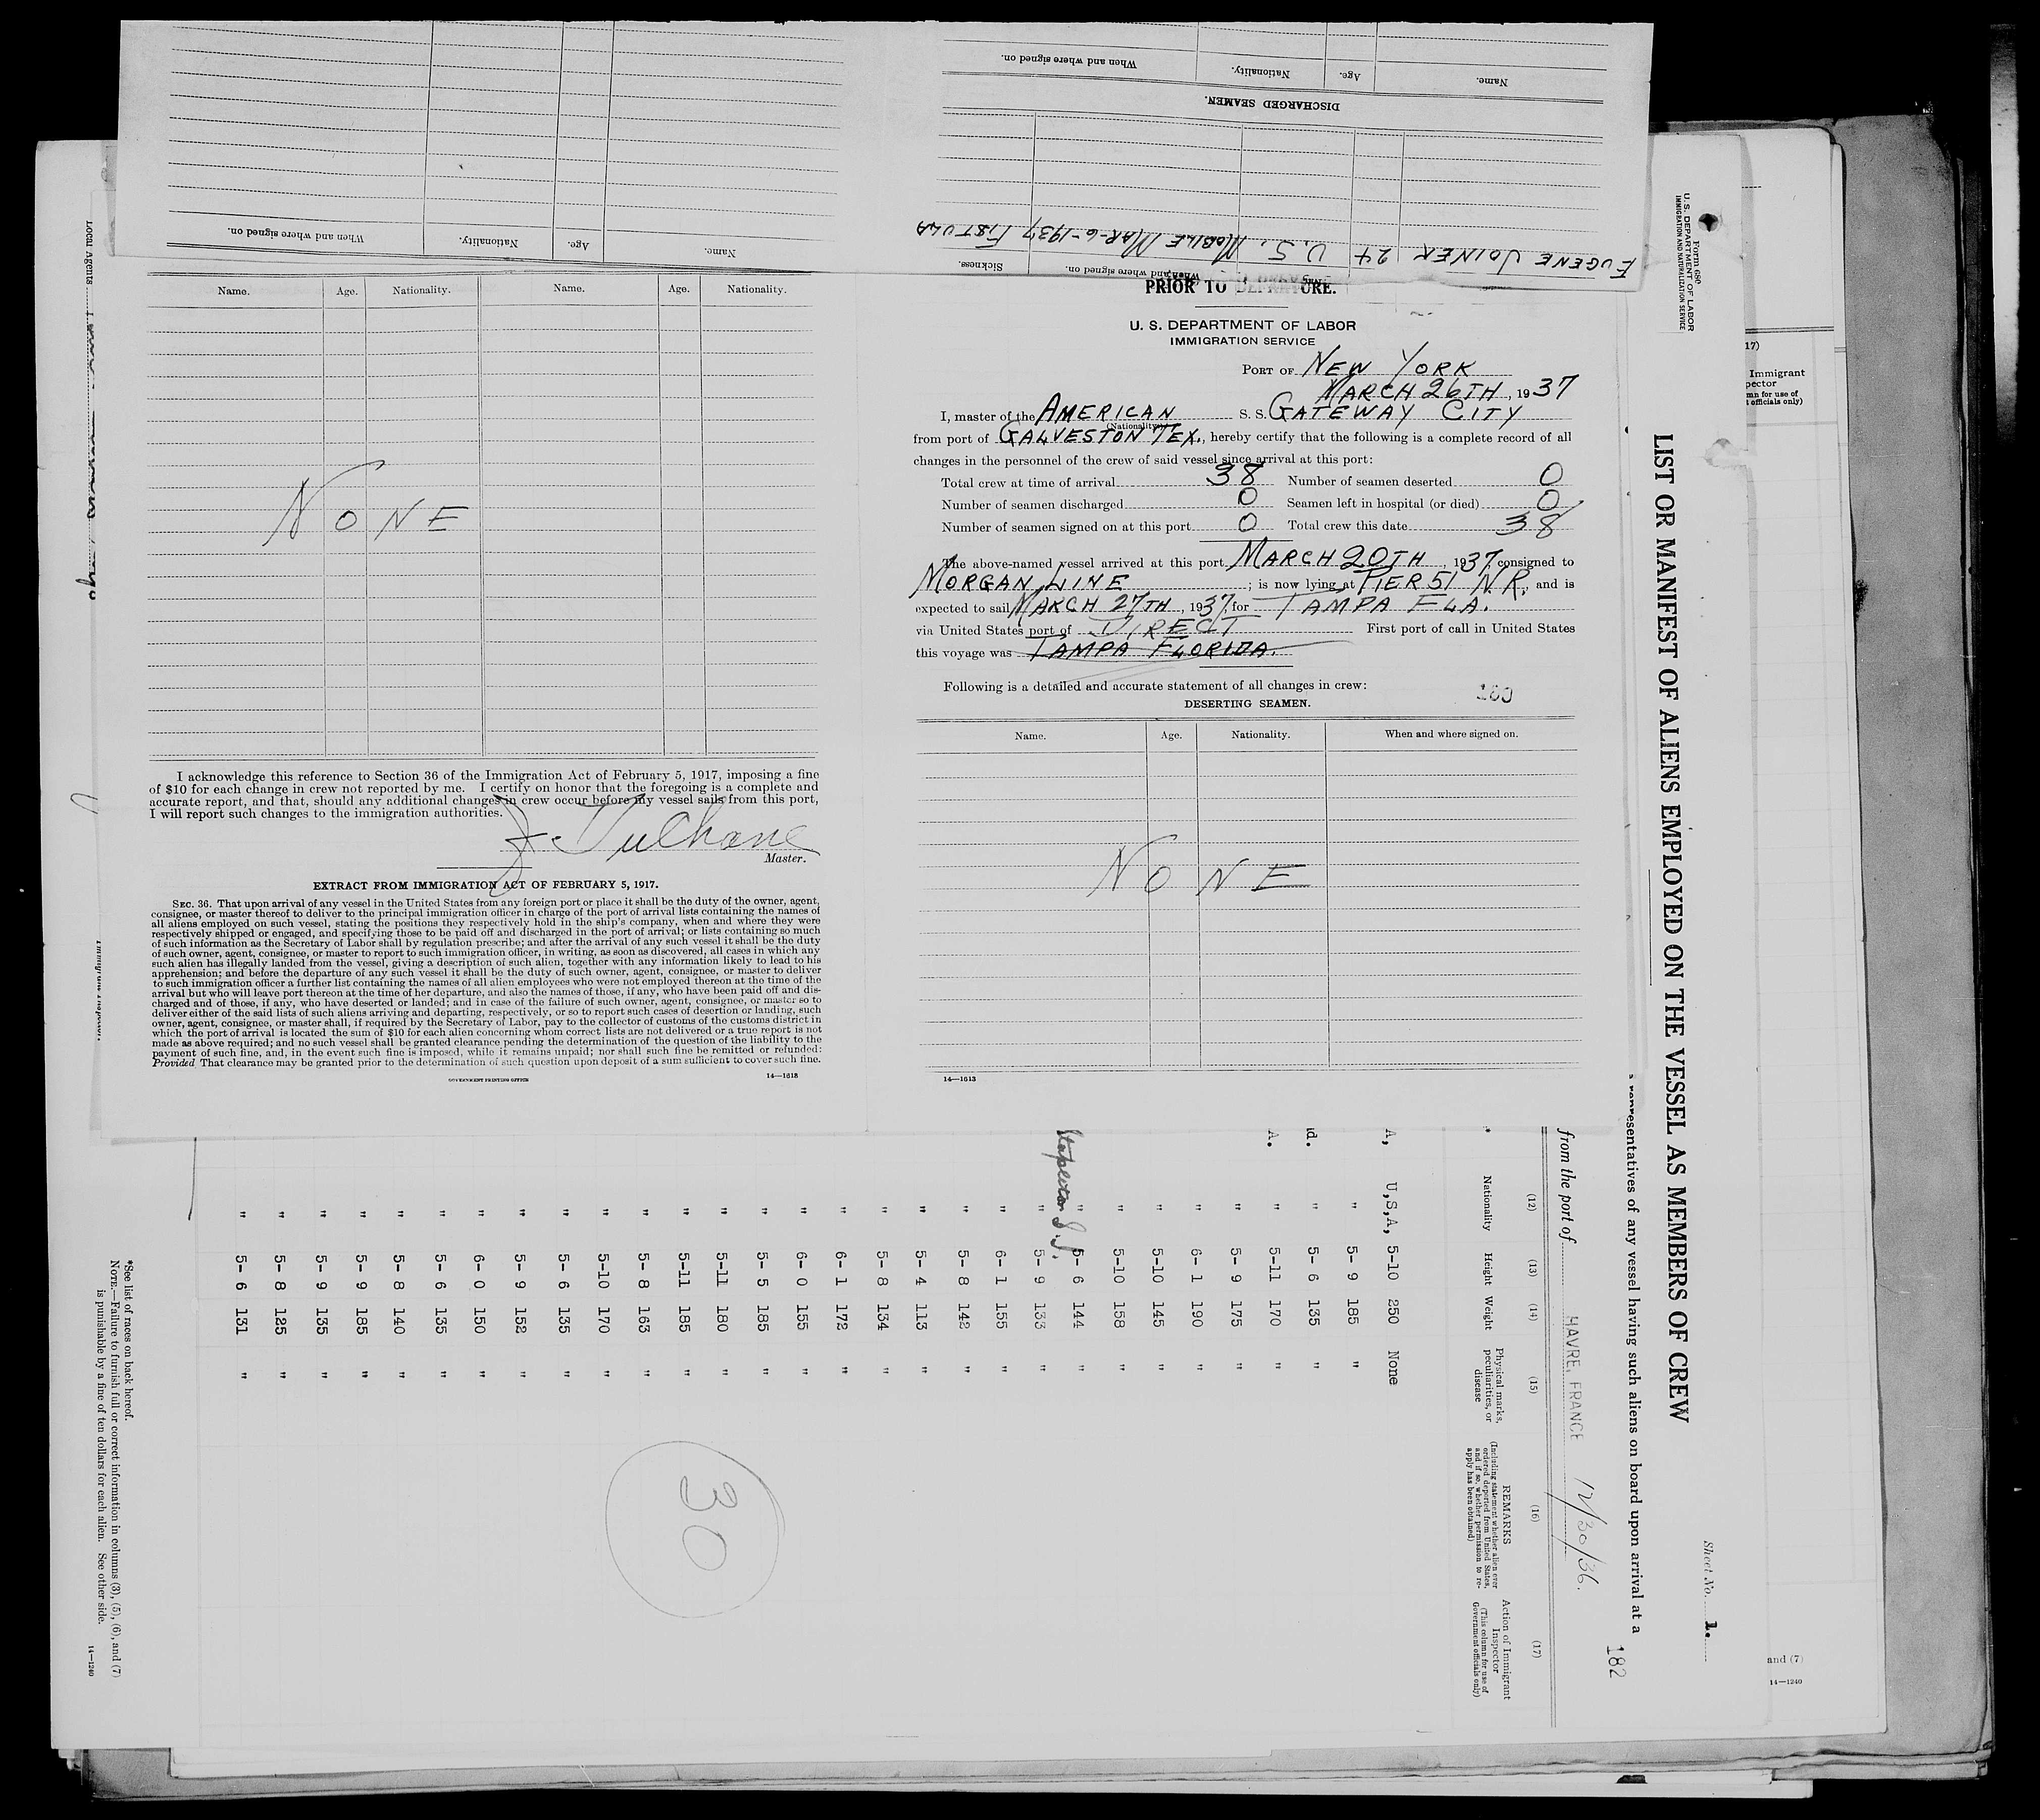 When and where signed on.
Nationality.
Age.
Name.
DISCHARGED SEAMEN.
EUGENE JOINER 24 U.S. MOBILE MAR-6-1937 FISTULA
Name. Age. Nationality. When and where signed on.
When and where signed on. Sickness.
Name. Age. Nationality. Name. Age. Nationality.
NONE
I acknowledge this reference to Section 36 of the Immigration Act of February 5, 1917, imposing a fine
of $10 for each change in crew not reported by me. I certify on honor that the foregoing is a complete and
accurate report, and that, should any additional changes in crew occur before my vessel sails from this port,
I will report such changes to the immigration authorities.
Master.
EXTRACT FROM IMMIGRATION ACT OF FEBRUARY 5, 1917.
SEC. 36. That upon arrival of any vessel in the United States from any foreign port or place it shall be the duty of the owner, agent,
consignee, or master thereof to deliver to the principal immigration officer in charge of the port of arrival lists containing the names of
all aliens employed on such vessel, stating the positions they respectively hold in the ship's company, when and where they were
respectively shipped or engaged, and specifying those to be paid off and discharged in the port of arrival; or lists containing so much
of such information as the Secretary of Labor shall by regulation prescribe; and after the arrival of any such vessel it shall be the duty
of such owner, agent, consignee, or master to report to such immigration officer, in writing, as soon as discovered, all cases in which any
such alien has illegally landed from the vessel, giving a description of such alien, together with any information likely to lead to his
apprehension; and before the departure of any such vessel it shall be the duty of such owner, agent, consignee, or master to deliver
to such immigration officer a further list containing the names of all alien employees who were not employed thereon at the time of the
arrival but who will leave port thereon at the time of her departure, and also the names of those, if any, who have been paid off and dis-
charged and of those, if any, who have deserted or landed; and in case of the failure of such owner, agent, consignee, or master so to
deliver either of the said lists of such aliens arriving and departing, respectively, or so to report such cases of desertion or landing, such
owner, agent, consignee, or master shall, if required by the Secretary of Labor, pay to the collector of customs of the customs district in
which the port of arrival is located the sum of $10 for each alien concerning whom correct lists are not delivered or a true report is not
made as above required; and no such vessel shall be granted clearance pending the determination of the question of the liability to the
payment of such fine, and, in the event such fine is imposed, while it remains unpaid; nor shall such fine be remitted or refunded:
Provided That clearance may be granted prior to the determination of such question upon deposit of a sum sufficient to cover such fine.
GOVERNMENT PRINTING OFFICE 14—1613
PRIOR TO DEPARTURE.
U. S. DEPARTMENT OF LABOR
IMMIGRATION SERVICE
PORT OF NEW YORK
MARCH 26TH, 1937
I, master of the AMERICAN S. S. GATEWAY CITY
(Nationality)
from port of GALVESTON TEX., hereby certify that the following is a complete record of all
changes in the personnel of the crew of said vessel since arrival at this port:
Total crew at time of arrival 38 Number of seamen deserted 0
Number of seamen discharged 0 Seamen left in hospital (or died) 0
Number of seamen signed on at this port 0 Total crew this date 38
The above-named vessel arrived at this port MARCH 20TH, 1937, consigned to
MORGAN LINE; is now lying at PIER 51 N.R., and is
expected to sail MARCH 27TH, 1937, for TAMPA FLA.
via United States port of DIRECT First port of call in United States
this voyage was TAMPA FLORIDA.
Following is a detailed and accurate statement of all changes in crew:
DESERTING SEAMEN.
Name. Age. Nationality. When and where signed on.
NONE
14—1613
Form 680
U. S. DEPARTMENT OF LABOR
IMMIGRATION AND NATURALIZATION SERVICE
Sheet No. 1.
LIST OR MANIFEST OF ALIENS EMPLOYED ON THE VESSEL AS MEMBERS OF CREW
representatives of any vessel having such aliens on board upon arrival at a
182
from the port of HAVRE, FRANCE 12/30/36.
(12) (13) (14) (15) (16) (17)
Nationality Height Weight Physical marks, peculiarities, or disease REMARKS (Including statement whether alien ever ordered deported from United States, and if so, whether permission to re-apply has been obtained) Action of Immigrant Inspector (This column for use of Government officials only)
A, U,S,A, 5-10 250 None
" 5- 9 185 "
d. " 5- 6 135 "
A. " 5-11 170 "
" 5- 9 175 "
" 6- 1 190 "
" 5-10 145 "
" 5-10 158 "
" 5- 6 144 "
Stapleton S.I.
" 5- 9 133 "
" 6- 1 155 "
" 5- 8 142 "
" 5- 4 113 "
" 5- 8 134 "
" 6- 1 172 "
" 6- 0 155 "
" 5- 5 185 "
" 5-11 180 "
" 5-11 185 "
" 5- 8 163 "
" 5-10 170 "
" 5- 6 135 "
" 5- 9 152 "
" 6- 0 150 "
" 5- 6 135 "
" 5- 8 140 "
" 5- 9 185 "
" 5- 9 135 "
" 5- 8 125 "
" 5- 6 131 "
30
*See list of races on back hereof.
NOTE.—Failure to furnish full or correct information in columns (3), (5), (6), and (7)
is punishable by a fine of ten dollars for each alien. See other side.
14—1240
Local Agents
17)
Immigrant
pector
mn for use of
t officials only)
and (7)
14—1240